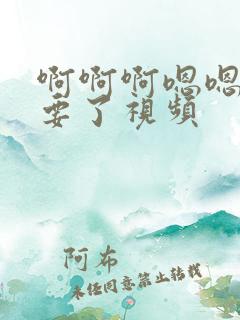 啊啊啊嗯嗯
要了視頻
阿布
未经同意禁止转载